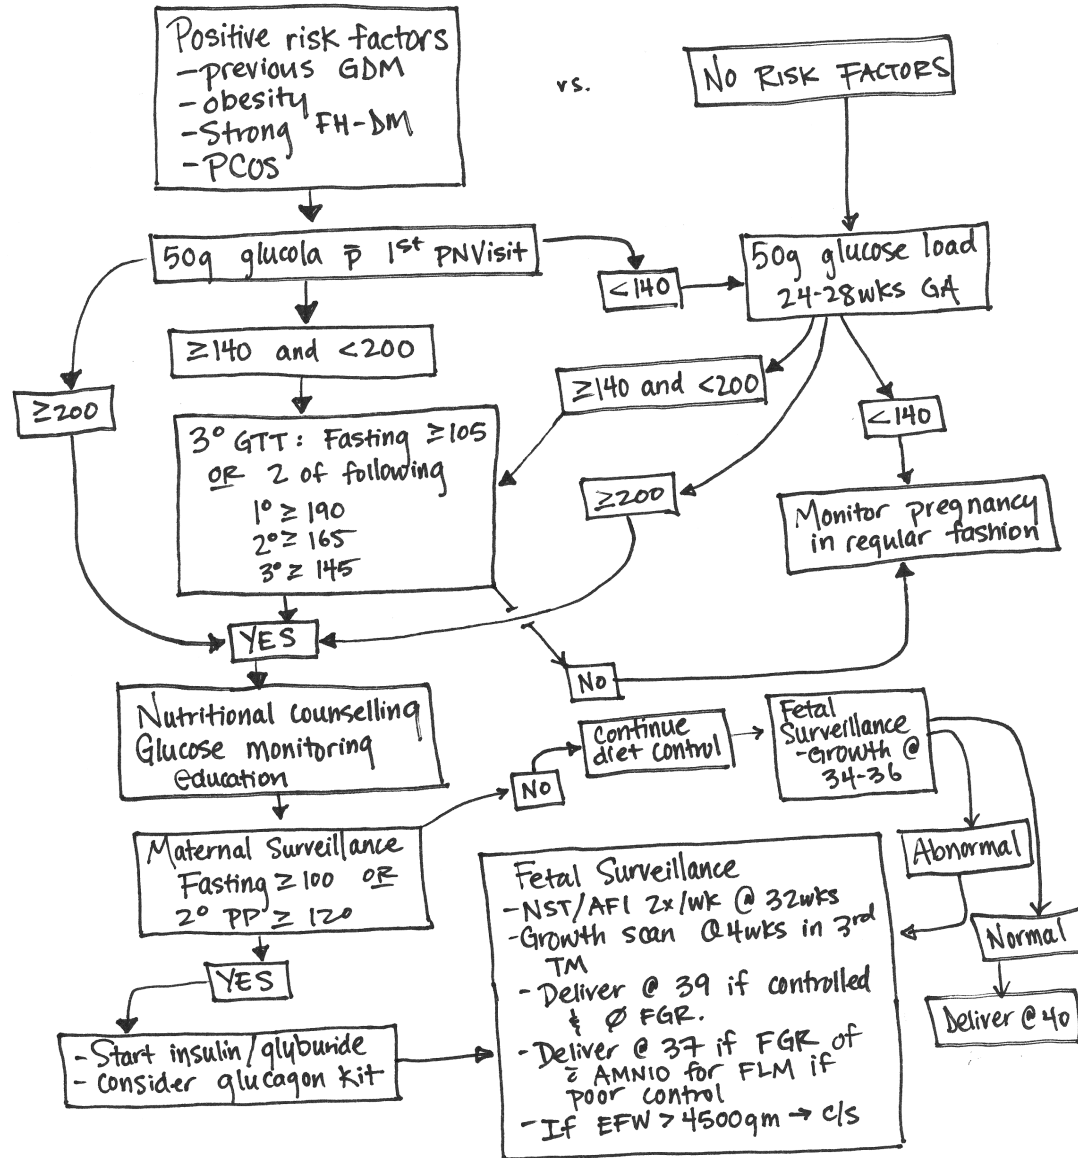 Positive risk factors
-previous GDM
-obesity
-Strong FH-DM
-PCOS
vs.
NO RISK FACTORS
50g glucola p̄ 1st PNVisit
<140
50g glucose load
24-28wks GA
≥140 and <200
≥200
≥140 and <200
<140
3° GTT: Fasting ≥105
OR 2 of following
1° ≥ 190
2° ≥ 165
3° ≥ 145
≥200
Monitor pregnancy
in regular fashion
YES
NO
Nutritional counselling
Glucose monitoring
education
NO
continue
diet control
Fetal
Surveillance
-Growth @
34-36
Maternal Surveillance
Fasting ≥100 OR
2° PP ≥ 120
Abnormal
Normal
Deliver @ 40
YES
-Start insulin/glyburide
-consider glucagon kit
Fetal Surveillance
-NST/AFI 2x/wk @ 32wks
-Growth scan Q4wks in 3rd
TM
-Deliver @ 39 if controlled
& Ø FGR.
-Deliver @ 37 if FGR of
c̄ AMNIO for FLM if
poor control
-If EFW > 4500gm → c/s